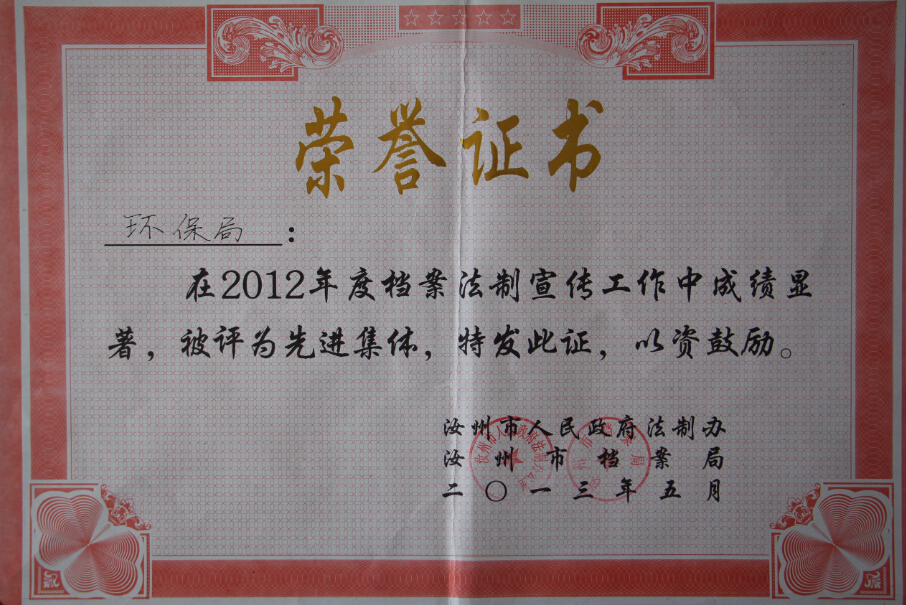 荣誉证书
环保局：
在2012年度档案法制宣传工作中成绩显
著，被评为先进集体，特发此证，以资鼓励。
汝州市人民政府法制办
汝州市档案局
二〇一三年五月